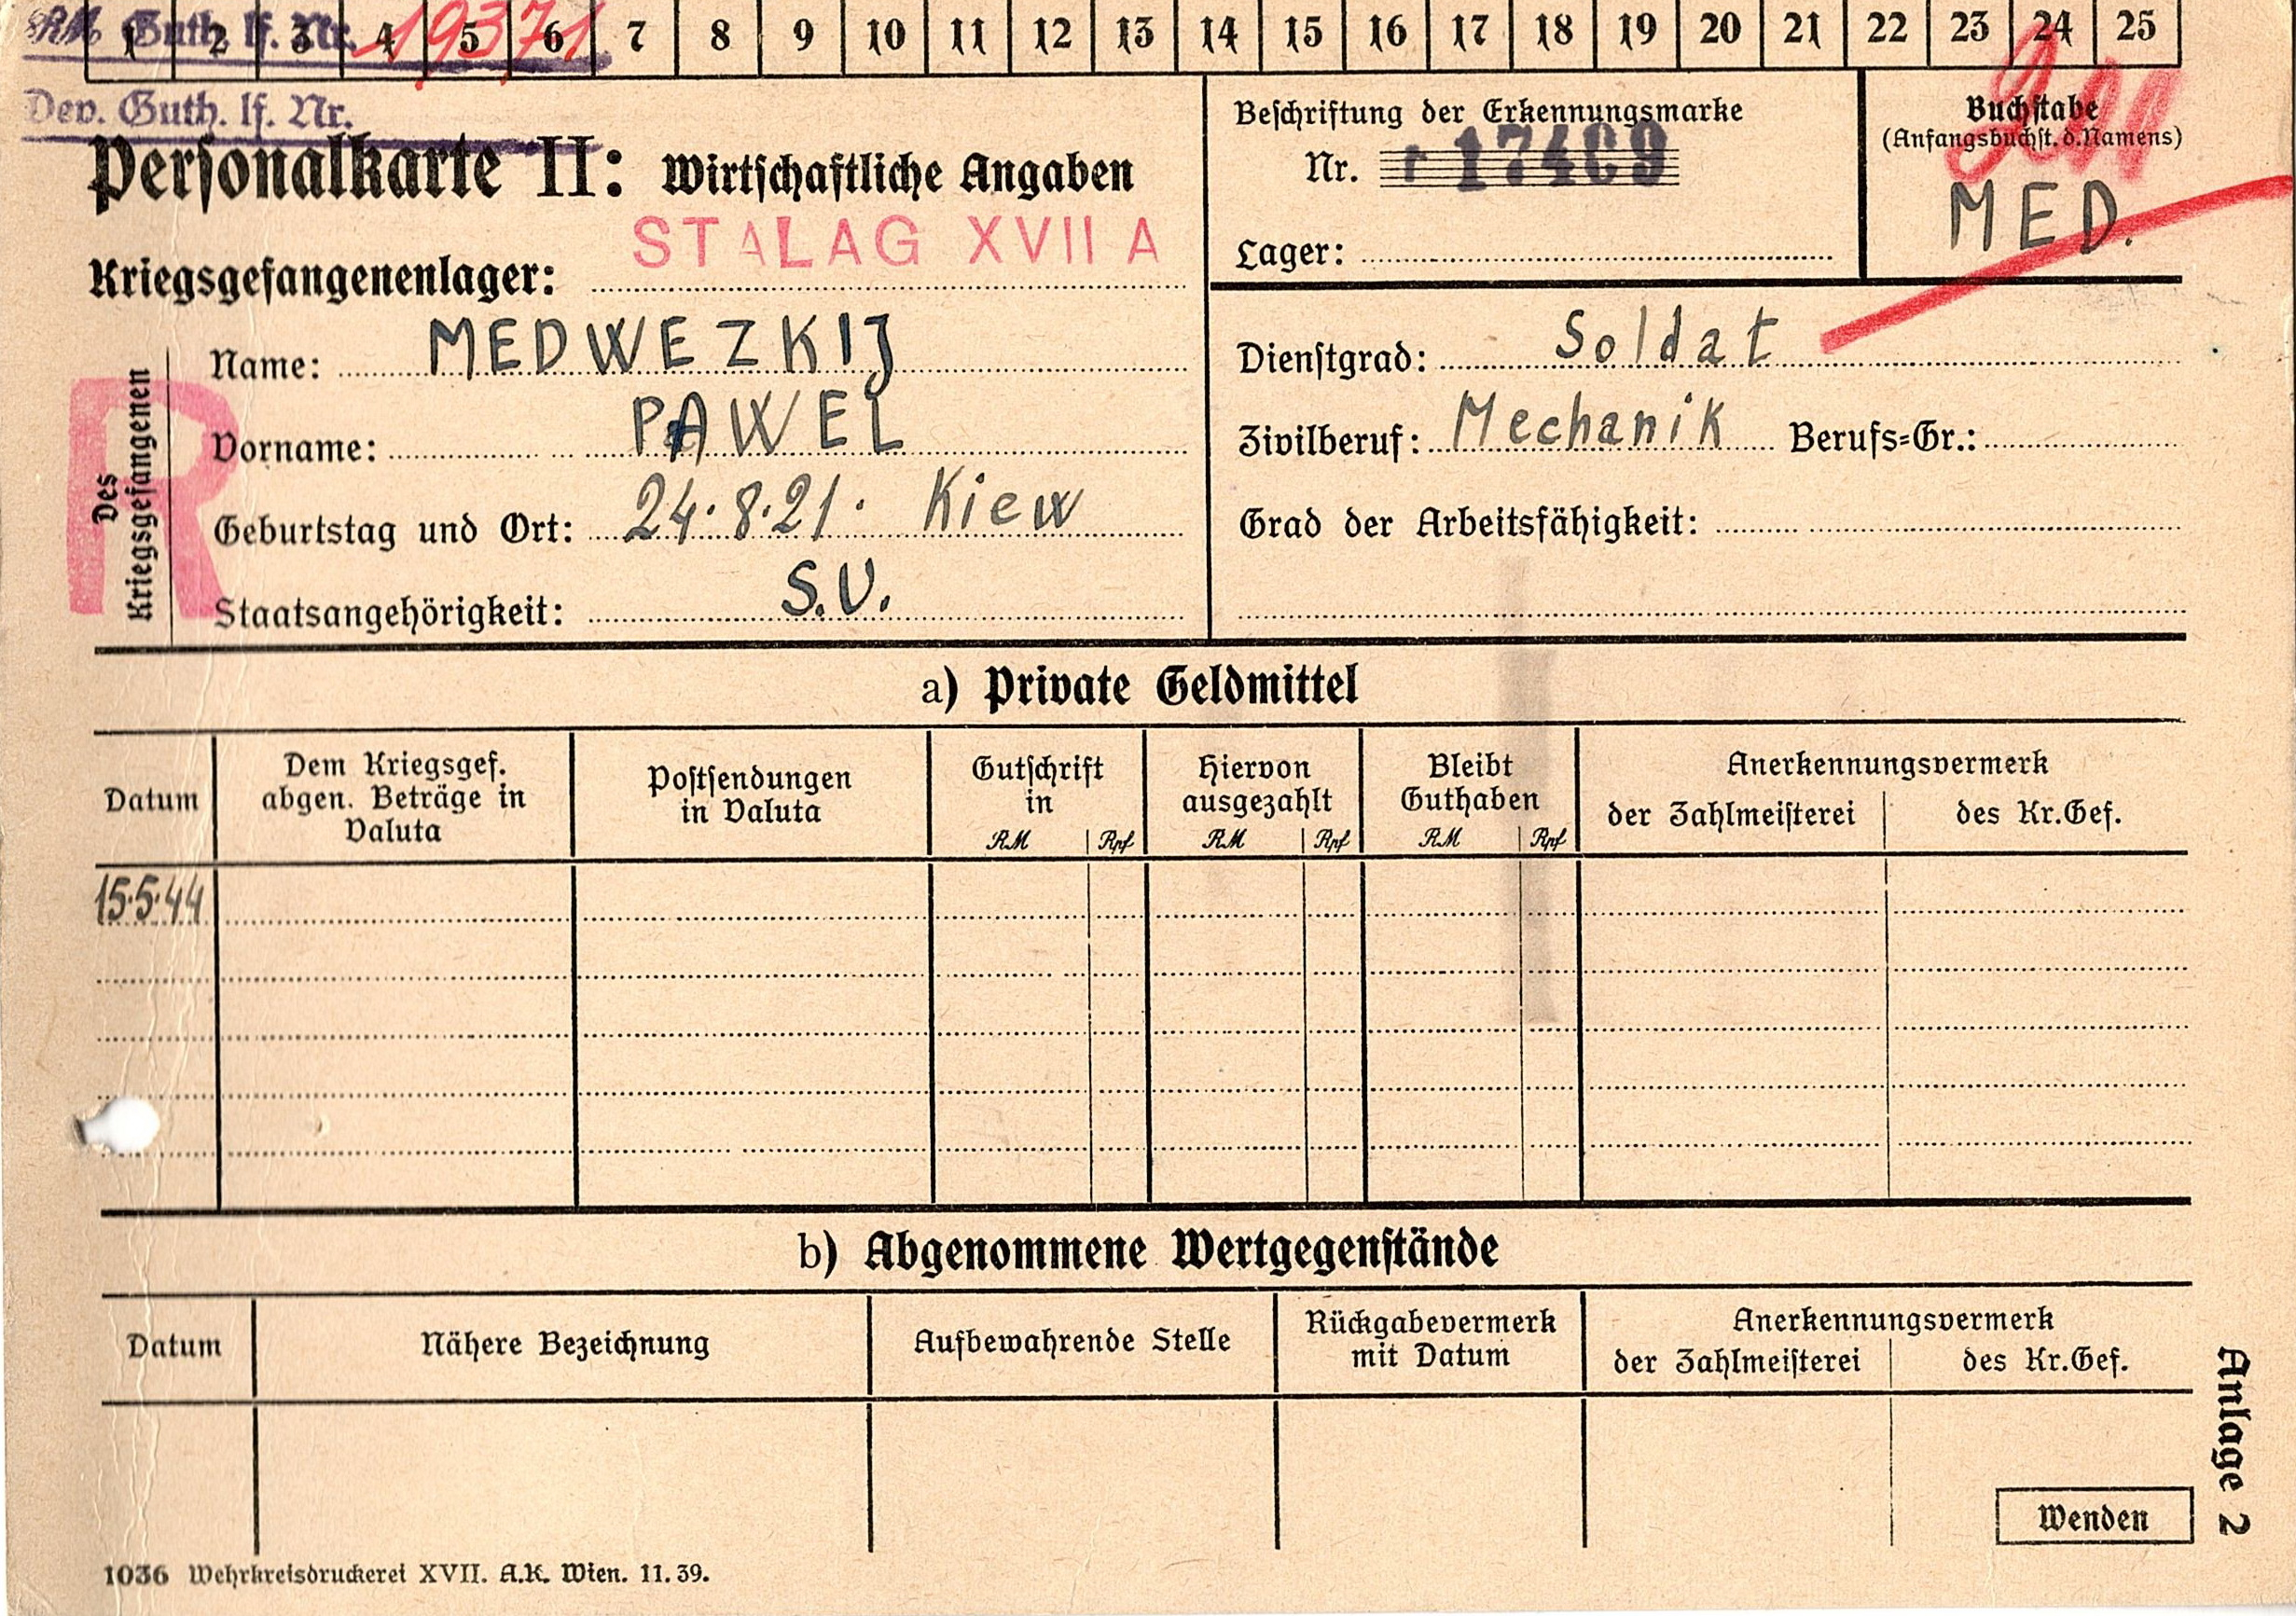 1 2 3 4 5 6 7 8 9 10 11 12 13 14 15 16 17 18 19 20 21 22 23 24 25
RM Guth. lf. Nr. 19371
Dev. Guth. lf. Nr.
Personalkarte II: Wirtschaftliche Angaben
STALAG XVII A
Kriegsgefangenenlager:
Beschriftung der Erkennungsmarke
Nr. r 17469
Lager:
Buchstabe
(Anfangsbuchst. d. Namens)
MED.
Des
Kriegsgefangenen
R
Name: MEDWEZKIJ
Vorname: PAWEL
Geburtstag und Ort: 24.8.21. Kiew
Staatsangehörigkeit: S.U.
Dienstgrad: Soldat
Zivilberuf: Mechanik Berufs=Gr.:
Grad der Arbeitsfähigkeit:
a) Private Geldmittel
Datum
Dem Kriegsgef.
abgen. Beträge in
Valuta
Postsendungen
in Valuta
Gutschrift
in
RM Rpf
Hiervon
ausgezahlt
RM Rpf
Bleibt
Guthaben
RM Rpf
Anerkennungsvermerk
der Zahlmeisterei des Kr.Gef.
15.5.44
b) Abgenommene Wertgegenstände
Datum
Nähere Bezeichnung
Aufbewahrende Stelle
Rückgabevermerk
mit Datum
Anerkennungsvermerk
der Zahlmeisterei des Kr.Gef.
Anlage 2
Wenden
1036 Wehrkreisdruckerei XVII. A.K. Wien. 11. 39.